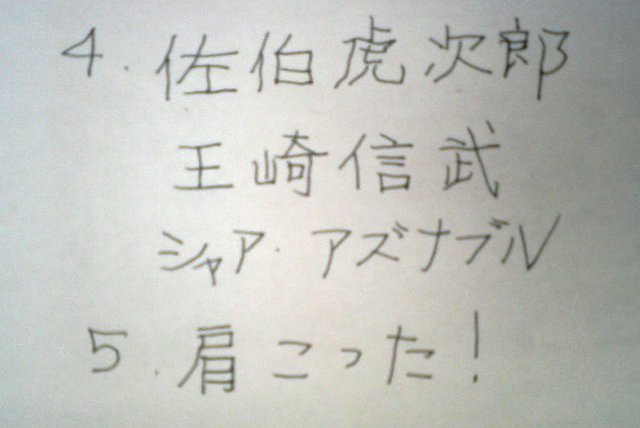 4. 佐伯虎次郎
王崎信武
シャア・アズナブル
5. 肩こった!